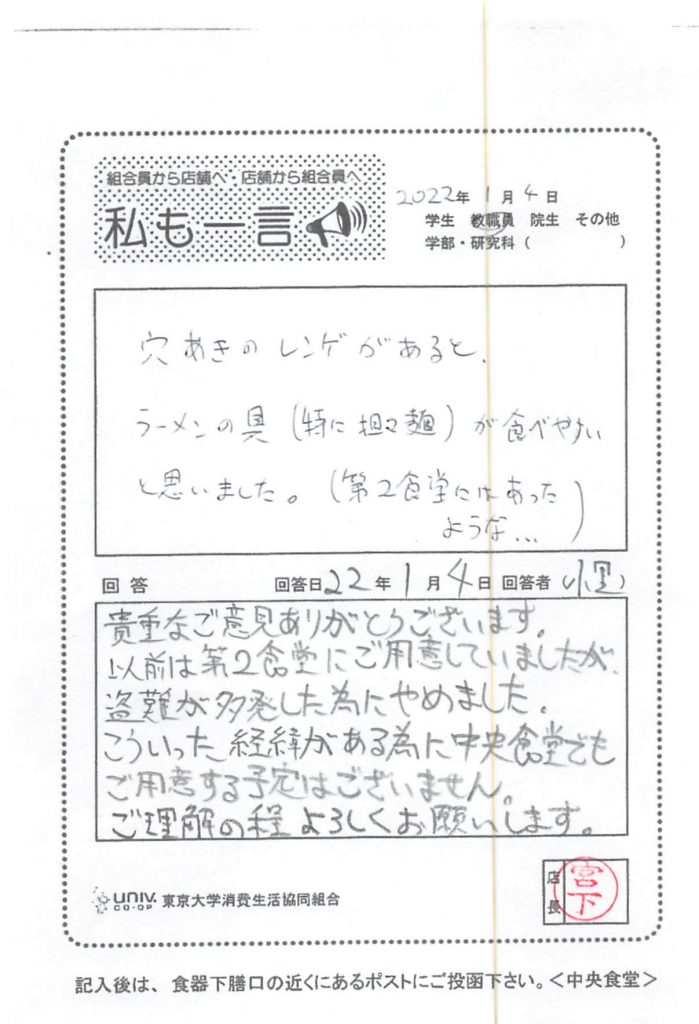 組合員から店舗へ・店舗から組合員へ
私も一言
2022年 1月 4日
学生 教職員 院生 その他
学部・研究科（ ）
穴あきのレンゲがあると、
ラーメンの具（特に担々麺）が食べやすい
と思いました。（第2食堂にはあった
ような...）
回答 回答日 22年 1月 4日 回答者（小里）
貴重なご意見ありがとうございます。
以前は第2食堂にご用意していましたが、
盗難が多発した為にやめました。
こういった経緯がある為に中央食堂でも
ご用意する予定はございません。
ご理解の程よろしくお願いします。
UNIV. CO-OP 東京大学消費生活協同組合
店長 宮下
記入後は、食器下膳口の近くにあるポストにご投函下さい。＜中央食堂＞